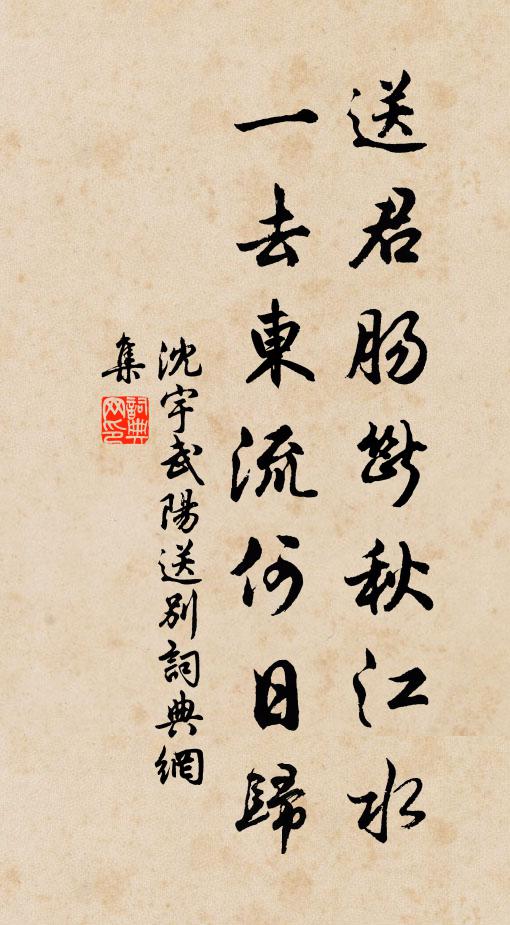 送君腸斷秋江水
一去東流何日歸
沈宇武陽送別詞典網
集
詞典网印